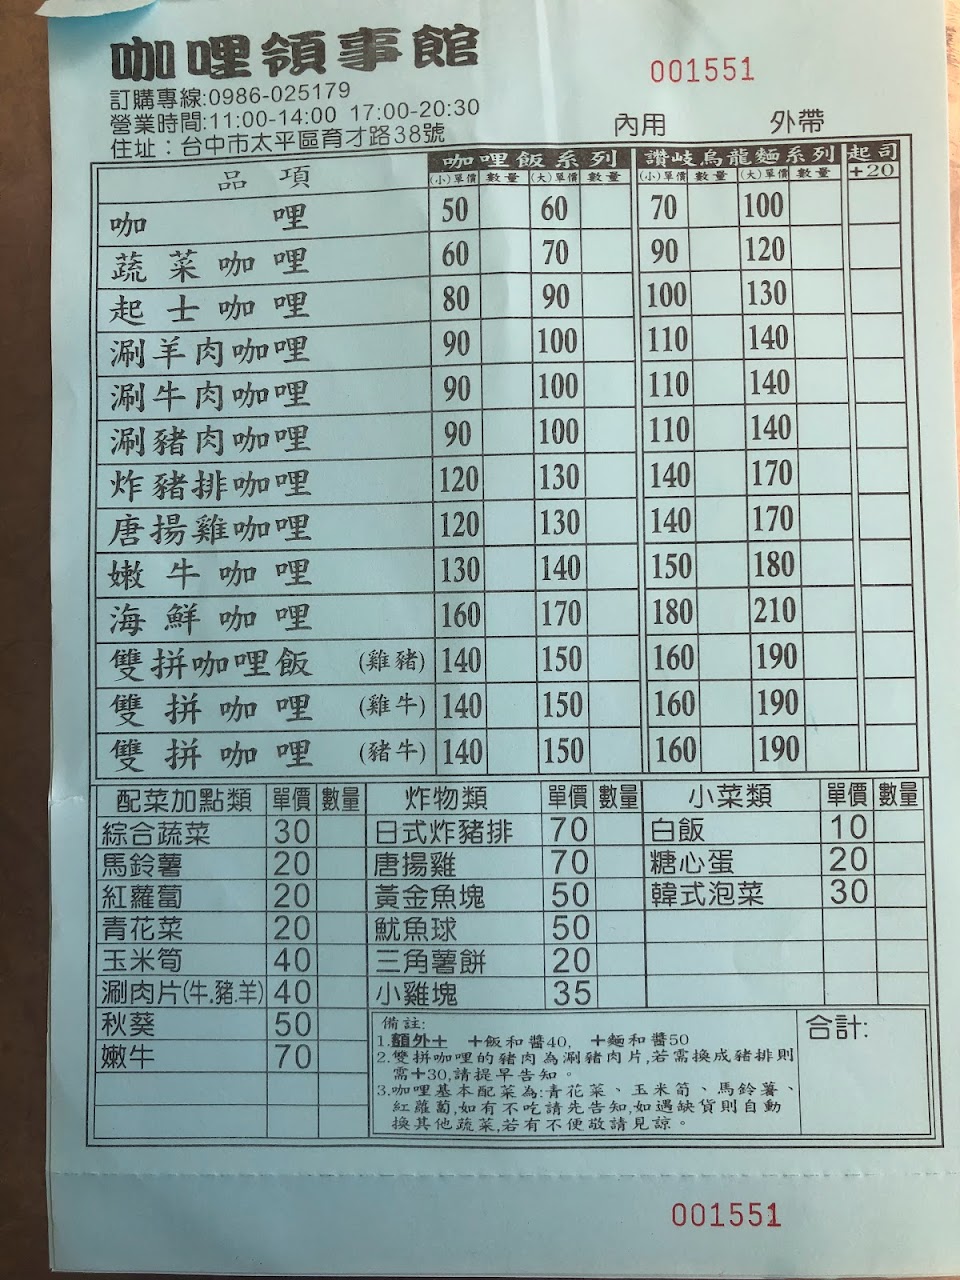 咖哩領事館
001551
訂購專線:0986-025179
營業時間:11:00-14:00 17:00-20:30
住址：台中市太平區育才路38號
內用 外帶
品項 咖哩飯系列 讚岐烏龍麵系列 起司+20
(小)單價 數量 (大)單價 數量 (小)單價 數量 (大)單價 數量
咖哩 50 60 70 100
蔬菜咖哩 60 70 90 120
起士咖哩 80 90 100 130
涮羊肉咖哩 90 100 110 140
涮牛肉咖哩 90 100 110 140
涮豬肉咖哩 90 100 110 140
炸豬排咖哩 120 130 140 170
唐揚雞咖哩 120 130 140 170
嫩牛咖哩 130 140 150 180
海鮮咖哩 160 170 180 210
雙拼咖哩飯 (雞豬) 140 150 160 190
雙拼咖哩 (雞牛) 140 150 160 190
雙拼咖哩 (豬牛) 140 150 160 190
配菜加點類 單價 數量 炸物類 單價 數量 小菜類 單價 數量
綜合蔬菜 30 日式炸豬排 70 白飯 10
馬鈴薯 20 唐揚雞 70 糖心蛋 20
紅蘿蔔 20 黃金魚塊 50 韓式泡菜 30
青花菜 20 魷魚球 50
玉米筍 40 三角薯餅 20
涮肉片(牛.豬.羊) 40 小雞塊 35
秋葵 50
嫩牛 70
備註:
1.額外+ +飯和醬40, +麵和醬50
2.雙拼咖哩的豬肉為涮豬肉片,若需換成豬排則
需+30,請提早告知。
3.咖哩基本配菜為:青花菜、玉米筍、馬鈴薯、
紅蘿蔔,如有不吃請先告知,如遇缺貨則自動
換其他蔬菜,若有不便敬請見諒。
合計:
001551